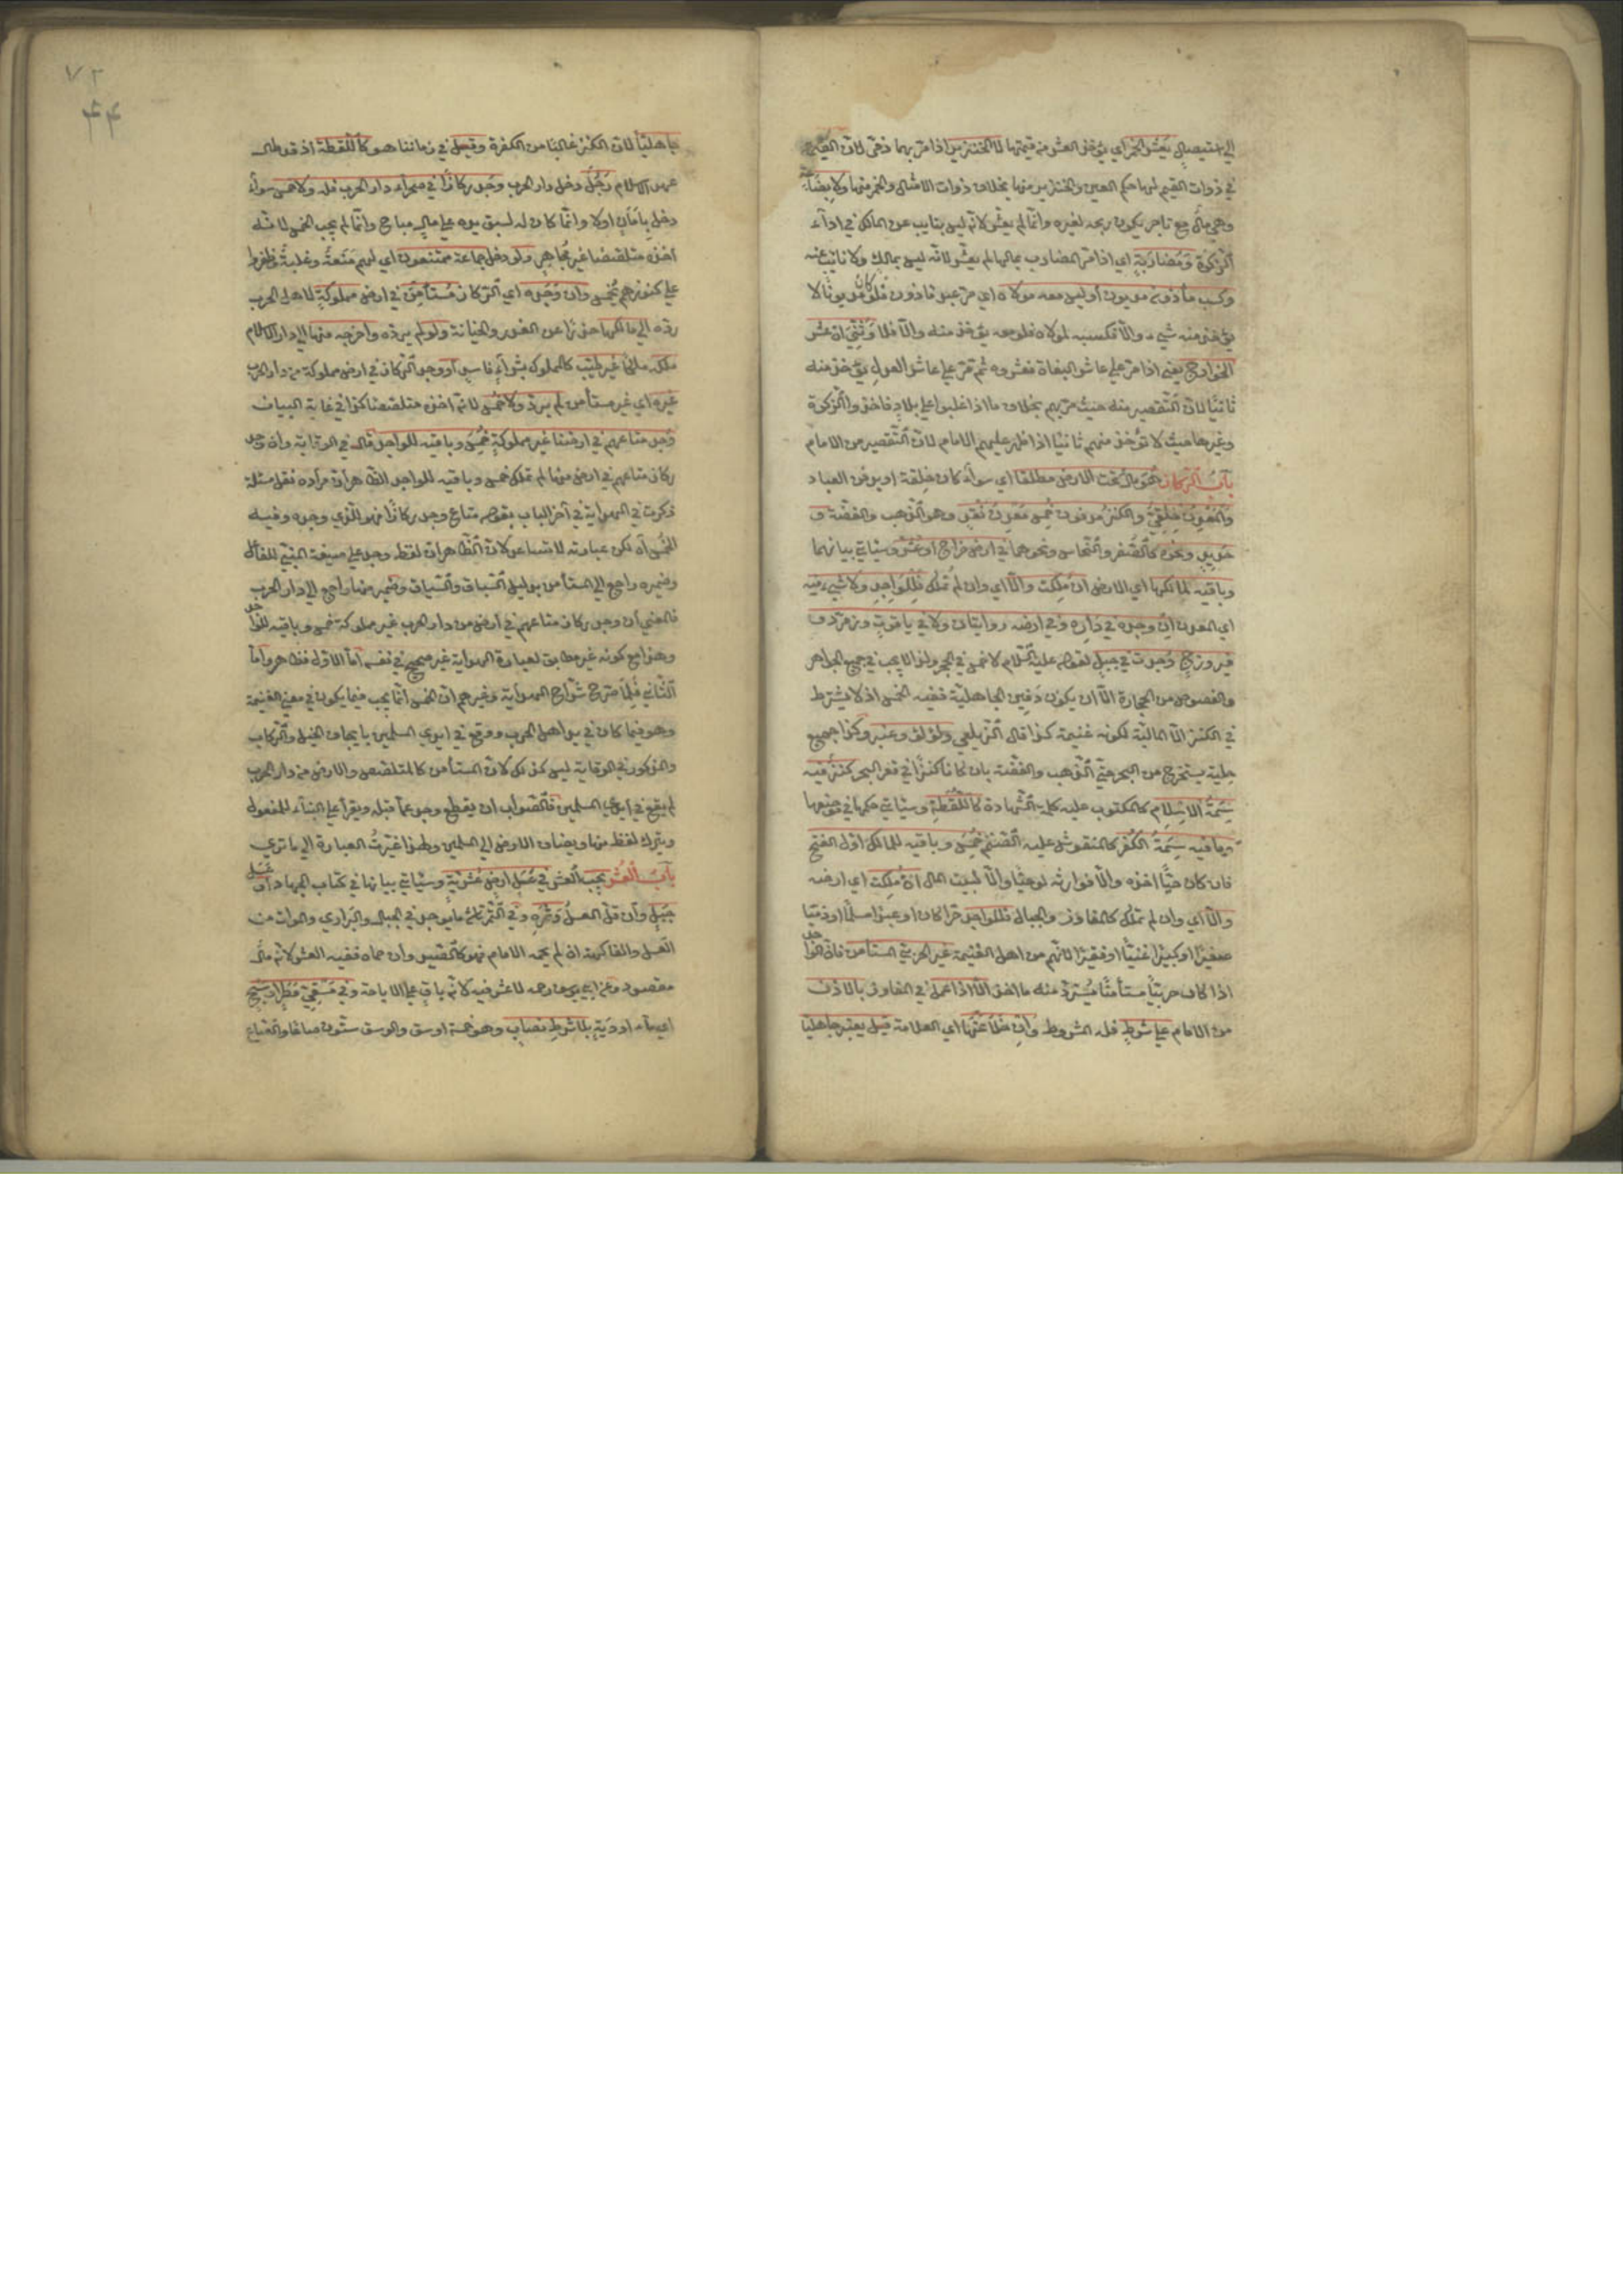 في ذوات القيم لها حكم العين والخنزير منها بخلاف ذوات الامثال والخمر منها ولا بضاعة
وهي مال مع تاجر يكون ربحه لغيره وانما لم يعشر لانه ليس بنايب عن المالك في اداء
الزكوة ومضاربة اي اذا مر المضارب بمالها لم يعشر لانه ليس بمالك ولا نائب عنه
وكسب مأذون مديون أوليس معه مولاه اي مر عبد مأذون فلو كان مديونا لا
يؤخذ منه شيء والا فكسبه لمولاه فلو معه يؤخذ منه والا فلا وثني ان عشر
الخوارج يعني اذا مر على عاشر البغاة فعشروه ثم مر على عاشر العدل يؤخذ منه
ثانيا لان التقصير منه حيث مر بهم بخلاف ما اذا غلبوا على بلاد فاخذوا الزكوة
وغيرها حيث لا تؤخذ منهم ثانيا اذا ظهر عليهم الامام لان التقصير من الامام
باب الركاز هو مال تحت الارض مطلقا اي سواء كان خلقة او بدفن العباد
والمعدن خلقي والكنز مدفون خمس معدن نقد وهو الذهب والفضة و
حديد ونحوه كالصفر والنحاس ونحوهما في ارض خراج او عشر وسيأتي بيانهما
وباقيه لمالكها اي الارض ان ملكت والا اي وان لم تملك فللواجد ولا شيء فيه
اي المعدن ان وجده في داره وفي ارضه روايتان ولا في ياقوت وزمرد و
فيروزج وجدت في جبل لقوله عليه السلام لا خمس في الحجر ولذا لا يجب في جميع الجواهر
والفصوص من الحجارة الا ان يكون دفين الجاهلية ففيه الخمس اذ لا يشترط
في الكنز الا المالية لكونه غنيمة كذا قال الزيلعي ولؤلؤ وعنبر وكذا جميع
حلية يستخرج من البحر حتى الذهب والفضة بان كانا كنزا في قعر البحر كنز فيه
سمة الاسلام كالمكتوب عليه كلمة الشهادة كاللقطة وسيأتي حكمها في موضعها
وما فيه سمة الكفر كالمنقوش عليه الصنم خمس وباقيه للمالك اول الفتح
فان كان حيا اخذه والا فوارثه لو حيا والا لبيت المال ان ملكت اي ارضه
والا اي وان لم تملك كالمفاوز والجبال فللواجد حرا كان او عبدا مسلما او ذميا
صغيرا او كبيرا غنيا او فقيرا لانهم من اهل الغنيمة غير الحربي المستأمن فان الواجد
اذا كان حربيا مستأمنا يسترد منه ما اخذ الا اذا عمل في المفاوز بالاذن
من الامام على شرط فله المشروط وان خلا عنها اي العلامة قيل يعتبر جاهليا
٧٢
جاهليا لان الكنز غالبا من الكفرة وقيل في زماننا هو كاللقطة اذ قد طال
عهد الاسلام رجل دخل دار الحرب وجد ركازا في صحراء دار الحرب فله ولا خمس سواء
دخل بأمان اولا وانما كان له لسبق يده على مال مباح وانما لم يجب الخمس لانه
أخذه متلصصا غير مجاهر ولو دخل جماعة ممتنعون اي لهم منعة وغلبة وظفروا
على كنوزهم يخمس وان وجده اي الركاز مستأمن في ارض مملوكة لاهل الحرب
رده الى مالكها حذرا عن الغدر والخيانة ولو لم يرده واخرجه منها الى دار الاسلام
ملكه ملكا غير طيب كالمملوك بشراء فاسد او وجد الركاز في ارض مملوكة من دار الحرب
غيره اي غير مستأمن لم يرد ولا خمس لانه اخذه متلصصا كذا في غاية البيان
وجد متاعهم في ارضنا غير مملوكة خمس وباقيه للواجد قال في الوقاية وان وجد
ركاز متاعهم في ارض منها لم تملك خمس وباقيه للواجد الظاهر أن مراده نقل مسئلة
ذكرت في الهداية في آخر الباب بقوله متاع وجد ركازا فهو للذي وجده وفيه
الخمس الا لكن عبارته لا تساعد لان الظاهر ان لفظ وجد على صيغة المبني للفاعل
وضميره راجع الى المستأمن بدليل السباق والسياق وضمير منها راجع الى دار الحرب
فالمعنى أن وجد ركاز متاعهم في أرض من دار الحرب غير مملوكة خمس وباقيه للواجد
وهذا مع كونه غير مطابق لعبارة الهداية غير صحيح في نفسه اما الاول فظاهر واما
الثاني فلما صرح شراح الهداية وغيرهم ان الخمس انما يجب فيما يكون في معنى الغنيمة
وهو فيما كان في يد اهل الحرب ووقع في ايدي المسلمين بايجاف الخيل والركاب
والمذكور في الوقاية ليس كذلك لان المستأمن كالمتلصص والارض من دار الحرب
لم يقع في ايدي المسلمين فالصواب ان يقطع وجد عما قبله ويقرأ على البناء للمفعول
ويترك لفظ منها ويضاف الارض الى المسلمين ولهذا غيرت العبارة الى ما ترى
باب العشر يجب العشر في عسل ارض عشرية وسيأتي بيانها في كتاب الجهاد او عسل
جبل وان قل العسل وثمره وفي الثمر ثلث ما يوجد في الجبال والبراري والموات من
العسل والفاكهة ان لم يحمه الامام فهو كالصيد وان حماه ففيه العشر لانه مال
مقصود وعن ابي يوسف لا عشر فيه لانه باق على الاباحة وفي مسقي مطر او سيح
اي ماء اودية بلا شرط نصاب وهو خمسة اوسق والوسق ستون صاعا والصاع